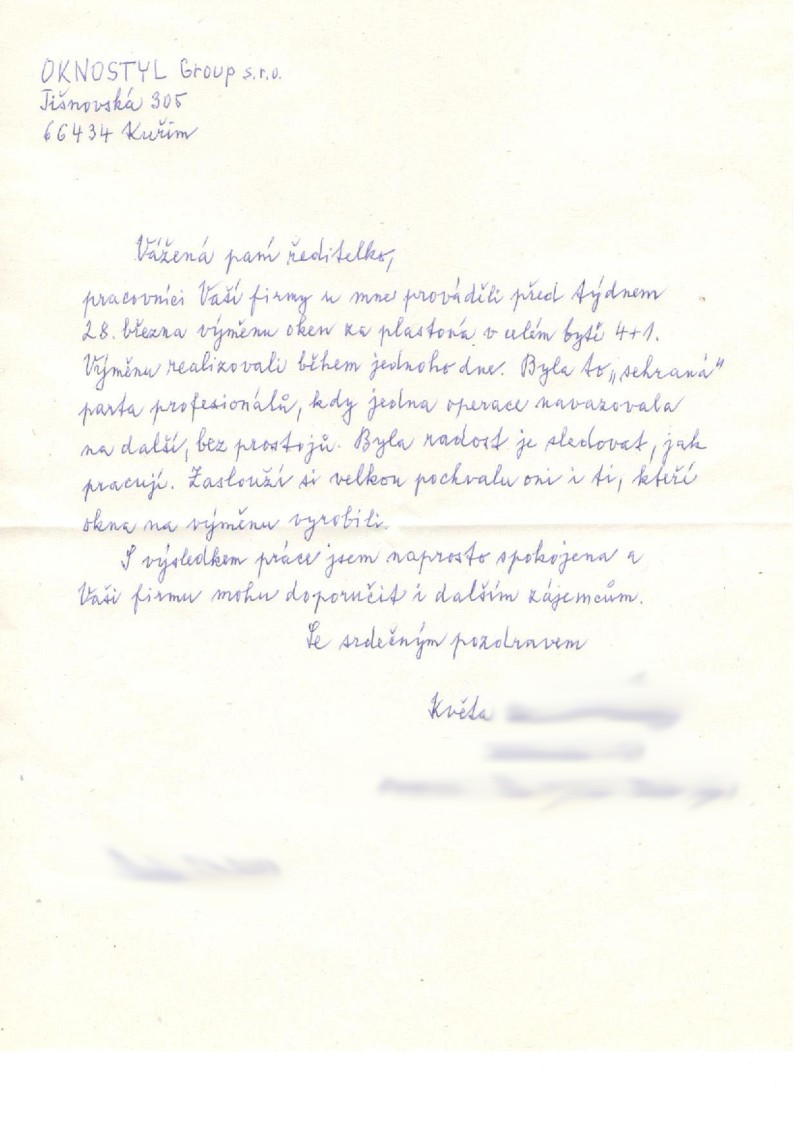 OKNOSTYL Group s.r.o.
Tišnovská 305
66434 Kuřim
Vážená paní ředitelko,
pracovníci Vaší firmy u mne prováděli před týdnem
28. března výměnu oken za plastová v celém bytě 4+1.
Výměnu realizovali během jednoho dne. Byla to „sehraná"
parta profesionálů, kdy jedna operace navazovala
na další, bez prostojů. Byla radost je sledovat, jak
pracují. Zaslouží si velkou pochvalu oni i ti, kteří
okna na výměnu vyrobili.
S výsledkem práce jsem naprosto spokojena a
Vaši firmu mohu doporučit i dalším zájemcům.
Se srdečným pozdravem
Květa